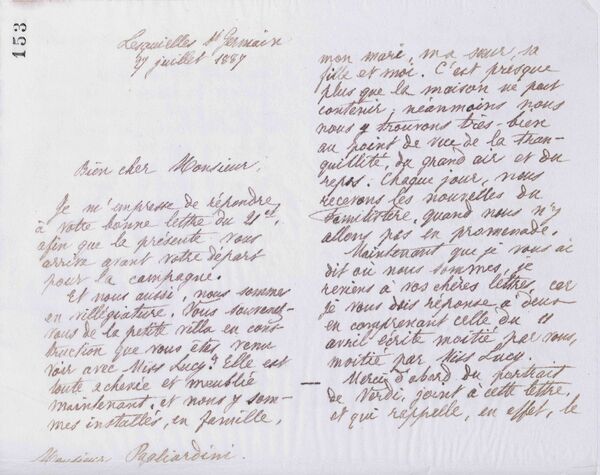 153
Lesquielles St Germain
27 juillet 1887
Bien cher Monsieur,
Je m'empresse de répondre
à votre bonne lettre du 21 ct,
afin que la présente vous
arrive avant votre départ
pour la campagne.
Et nous aussi, nous sommes
en villégiature. Vous souvenez-
vous de la petite villa en cons-
truction que vous êtes venu
voir avec Miss Lucy? Elle est
toute achevée et meublée
maintenant, et nous y som-
mes installés, en famille,
Monsieur Pagliardini.
mon mari, ma sœur, sa
fille et moi. C'est presque
plus que la maison ne peut
contenir; néanmoins nous
nous y trouvons très-bien
au point de vue de la tran-
quillité, du grand air et du
repos. Chaque jour, nous
recevons les nouvelles du
Familistère, quand nous n'y
allons pas en promenade.
Maintenant que je vous ai
dit où nous sommes, je
reviens à vos chères lettres, car
je vous dois réponse à deux
en comprenant celle du 11
avril écrite moitié par vous,
moitié par Miss Lucy.
Merci d'abord du portrait
de Verdi, joint à cette lettre,
et qui rappelle, en effet, le